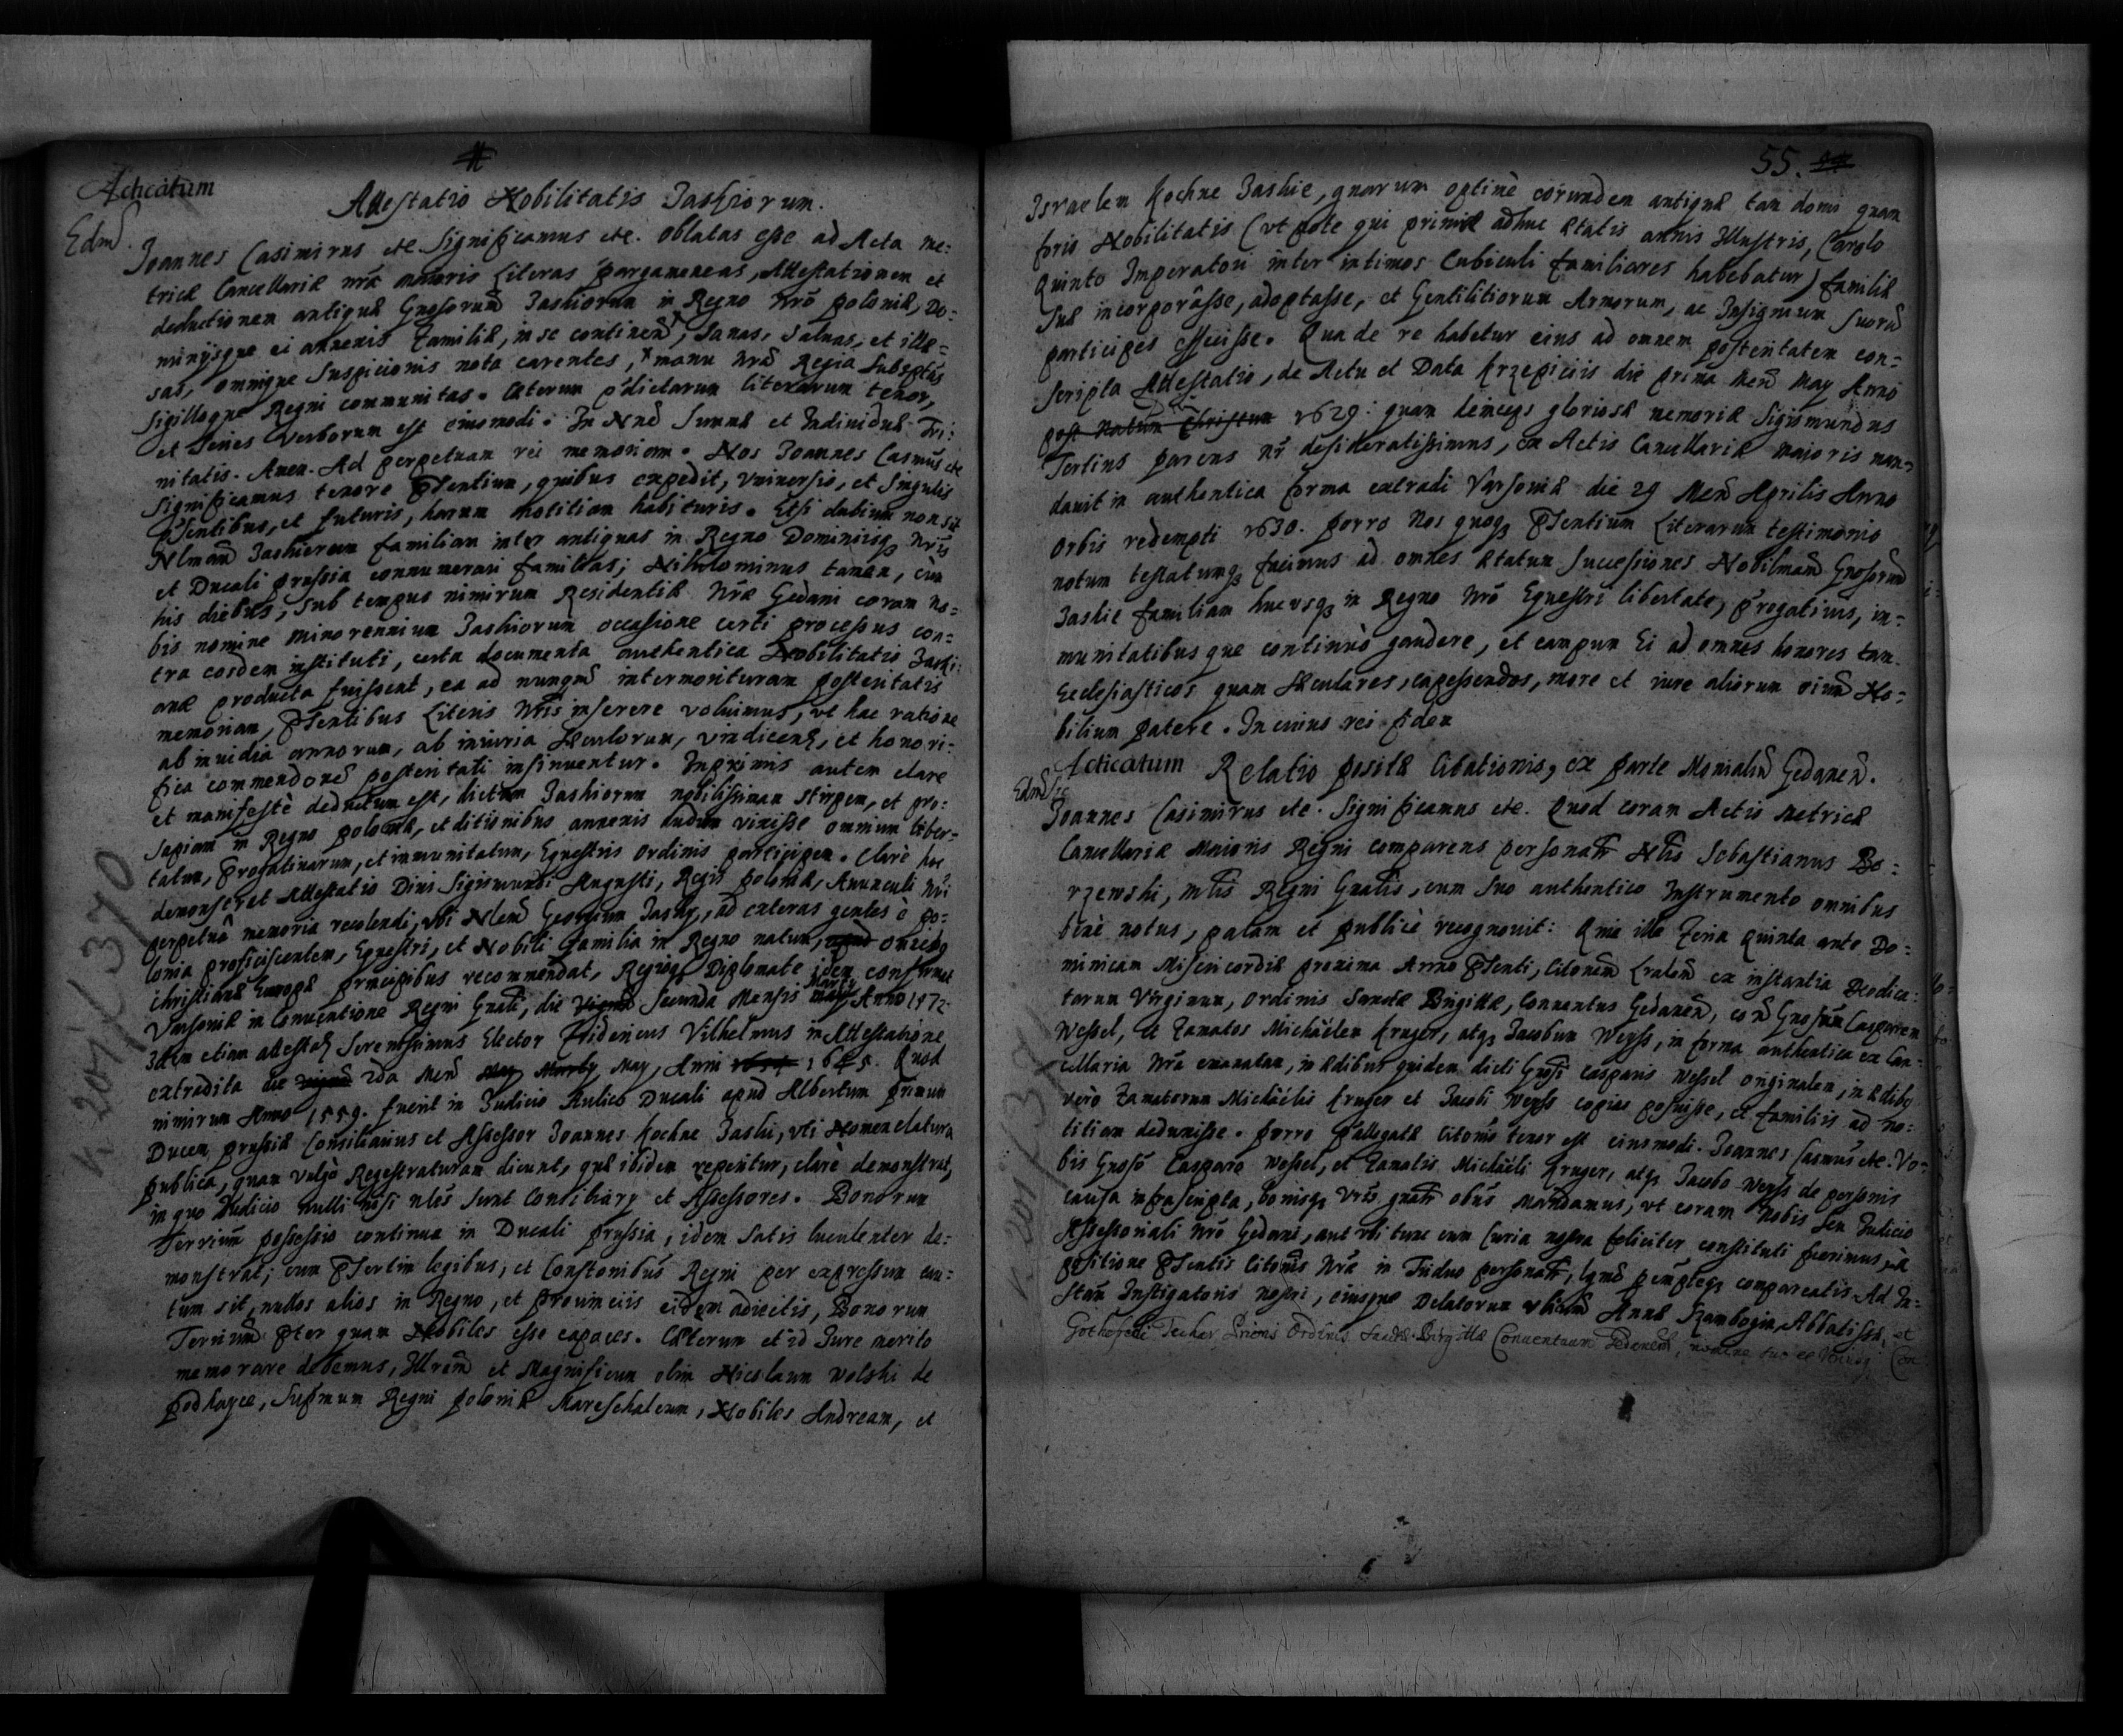 Acticatum
Attestatio Nobilitatis Jashiorum.
Edmd.
Joannes Casimirus etc. Significamus etc. Oblatas esse ad Acta me-
tricæ Cancellariæ nrã maioris Literas pargameneas, Attestationem et
deductionem antiquæ Gnosorum Jashiorum in Regno nrõ Poloniæ, Do-
minijsque ei annexis Familiæ, in se continen̄, sanas, salvas, et illæ-
sas, omnique suspicionis nota carentes, manu nrã Regia subscptas
sigillogne Regni communitas. Cæterum pdictarum literarum tenor,
et series verborum est eiusmodi. In Nne Summæ et Individuæ Tri-
nitatis. Amen. Ad perpetuam rei memoriam. Nos Joannes Casmus etc
Significamus tenore Psentium, quibus expedit, vniversis, et singulis
Psentibus, et futuris, harum notitiam habituris. Etsi dubium non sit
Nlmam Jashiorum familiam inter antiquas in Regno Dominiisq nris
et Ducali Prussia connumerari familias; Nihilominus tamen, cum
his diebus, sub tempus nimirum Residentiæ Nræ Gedani coram no-
bis nomine Minorennium Jashiorum occasione certi processus con-
tra eosdem instituti, certa documenta authentica Nobilitatis Jashi-
anæ producta fuissent, ea ad nunqm intermorituram posteritatis
memoriam, Psentibus Literis Nris inserere voluimus, vt hac ratione
ab invidia annorum, ab iniuria sæculorum, vindicent, et honori-
fica commendone posteritati insinuentur. Inprimis autem clare
et manifestè deductum est, dictam Jashiorum nobilissimam stirpem, et pro-
sapiam in Regno Poloniæ, et ditionibus annexis dudum vixisse omnium liber-
tatum, Progatiuarum, et immunitatum, Equestris Ordinis participem. Clarè hoc
demonstret Attestatio Divi Sigismundi Augusti, Regis Poloniæ, Avunculi nri
perpetuâ memoria recolendi, vbi Nlem Georgium Jashy, ad exteras gentes è Po-
lonia proficiscentem, Equestri, et Nobili Familia in Regno natum, omibq
Christianæ Europæ principibus recommendat, Regioq Diplomate idem confirmat
Varsoviæ in Convocatione Regni Gnali, die Secunda Mensis Marty Anno 1572
Idem etiam attestat Serenissimus Elector Fridericus Vilhelmus in Attestatione
extradita die 2da Mens May, Anni 1645. Quod
nimirum Anno 1559. fuerit in Judicio Aulico Ducali apud Albertum primum
Ducem Prussiæ Consiliarius et Assessor Joannes Kochne Jashi, vti Nomenclatura
publica, quam vulgò Regestraturam dicunt, quæ ibidem reperitur, clarè demonstrat,
in quo Judicio nulli nisi nles sunt Consiliary et Assessores. Bonorum
Terrium possessio continua in Ducali Prussia, idem satis luculenter de-
monstrat; cum Psertim legibus, et Constonibus Regni per expressum cau-
tum sit, nullos alios in Regno, et Provinciis eidem adiectis, Bonorum
Terrium Pter quam Nobiles esse capaces. Cæterum et id Jure merito
memorare debemus, Illrem et Magnificum olim Nicolaum Wolski de
Podhayce, Supmum Regni Poloniæ Mareschalcum, Nobiles Andream, et
K 201/370
55.
Israelem Kochne Jashie, gnarum optimè eorundem antiquæ tam domi quam
foris Nobilitatis (vt pote qui primis adhuc ætatis annis Illustris, Carolo
Quinto Imperatori inter intimos Cubiculi familiares habebatur) familiæ
suæ incorporâsse, adoptasse, et Gentilitiorum Armorum, ac Insignium suorum
participes effecisse. Qua de re habetur eius ad omnem posteritatem con-
scripta Attestatio, de Actu et Data Krzepiciis die prima Mens May Anno
post Natum Christum 1629: quam deinceps gloriosæ memoriæ Sigismundus
Tertius parens nr desideratissimus, ex Actis Cancellariæ maioris man-
davit in authentica forma extradi Varsoviæ die 29 Mens Aprilis Anno
Orbis redempti 1630. Porro Nos quoq Psentium Literarum testimonio
notum testatumq facimus ad omnes ætatum successiones Nobilmam Gnosorum
Jashie familiam hucvsq in Regno Nrõ Equestri libertate, Progativis, im-
munitatibusque continuò gaudere, et campum Ei ad omnes honores tam
Ecclesiasticos quam sæculares, capessendos, more et iure aliorum oium No-
bilium patere. In cuius rei fidem
Acticatum Relatio positæ Citationis, ex parte Monialium Gedanen.
Joannes Casimirus etc. Significamus etc. Quod coram Actis Metricæ
Cancellariæ Maioris Regni comparens personalr Nlis Sebastianus Bo-
rzewski, Mlis Regni Gnalis, cum suo authentico Instrumento omnibus
benè notus, palam et publicè recognovit: Quia ille Feria Quinta ante Do-
minicam Misericordiæ proxima Anno Psenti, Citonem Lralem ex instantia Deodica-
tarum Virginum, ordinis Sanctæ Brigittæ, Conventus Gedanen, con Gnosum Casparem
Wessel, et Famatos Michäélem Kruger, atq Jacobum Weyss, in forma authentica ex Can-
cellaria Nrã emanatam, in ædibus quidem dicti Gnosi Casparis Wessel originalem, in ædibq
verò Famatorum Michäélis Kruger et Jacobi Weyss copias posuisse, et familiis ad no-
titiam deduxisse. Porro Pallegatæ Citonis tenor est eiusmodi. Joannes Casmus etc. Vo-
bis Gnoso Casparo Wessel, et Famatis Michäéli Kruger, atq Jacobo Weyss de personis
causa infrascripta, bonisq vris gnalr obus Mandamus, vt coram Nobis seu Judicio
Assessoriali Nrõ Gedani, aut vbi tunc cum Curia nostra feliciter constituti fuerimus, à
positione Psentis Citonis Nræ in Triduo personalr, compareatis. Ad In-
stam Instigatoris nostri, eiusque Delatorum Annæ Szembogin, Abbatissæ, et
Prioris Ordinis Sanctæ Birgittæ Conventuum Gedanen, nomine suo et
K 201/37